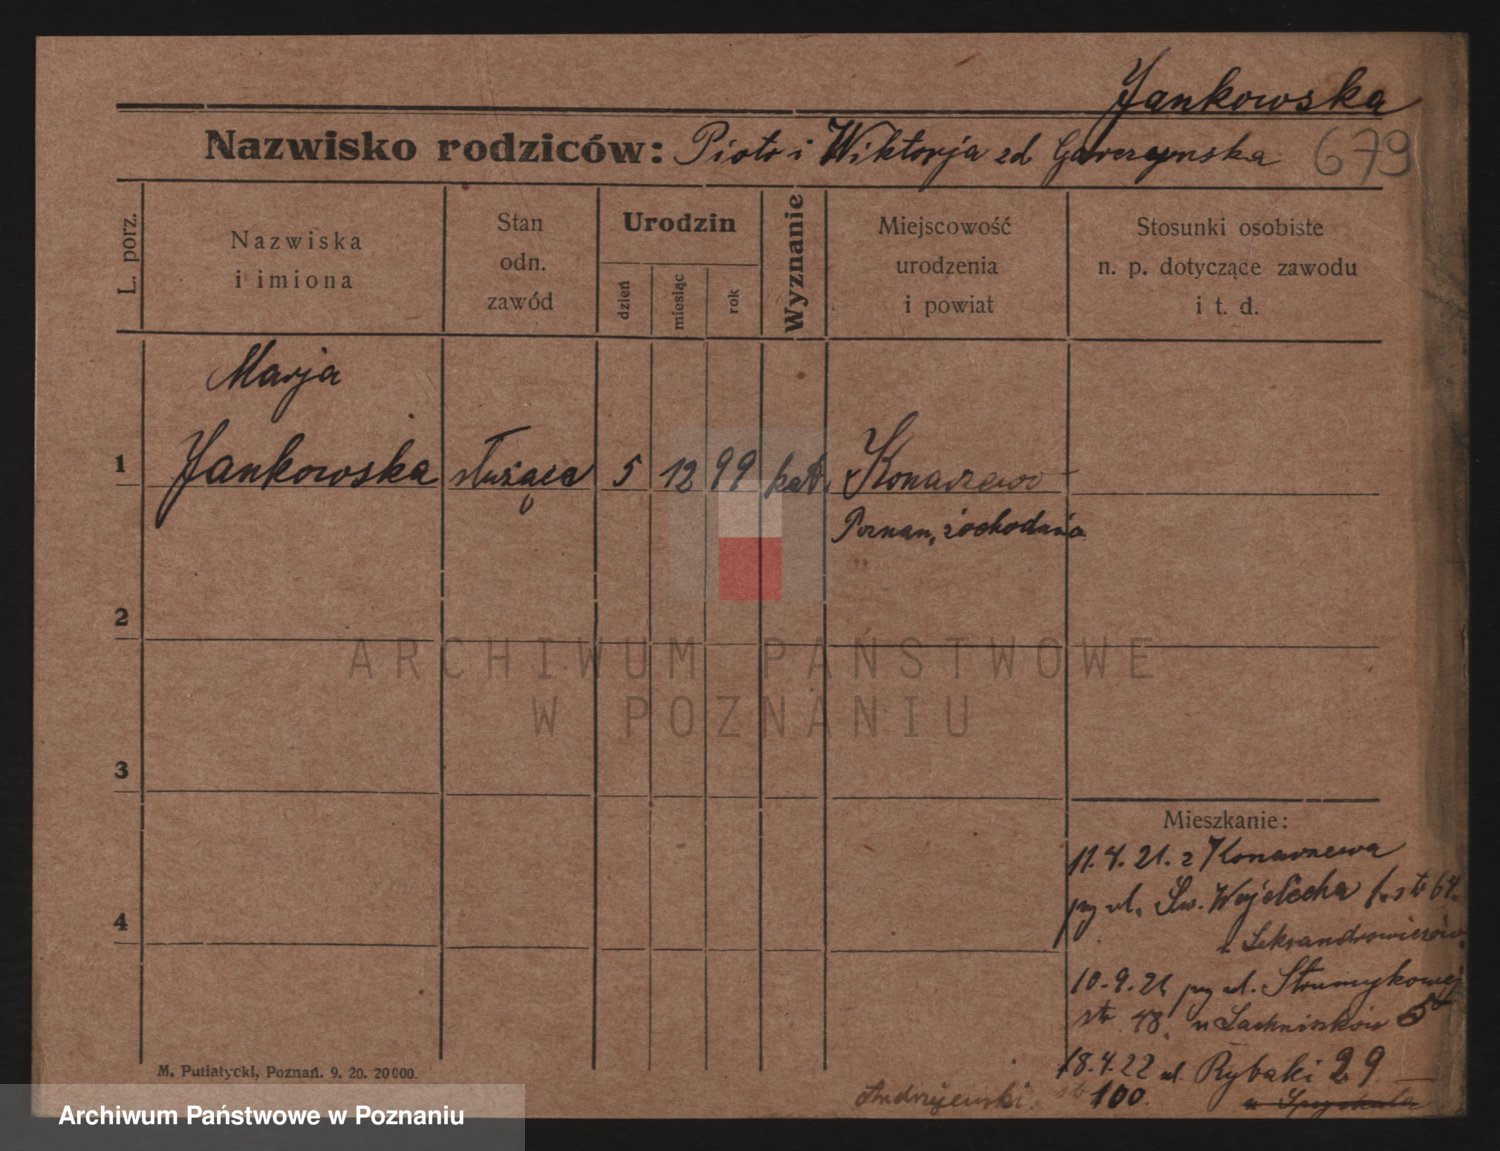 Jankowska
Nazwisko rodziców: Piotr i Wiktorja zd Garczynska 679
L. porz.
Nazwiska i imiona
Stan odn. zawód
Urodzin
dzień
miesiąc
rok
Wyznanie
Miejscowość urodzenia i powiat
Stosunki osobiste n. p. dotyczące zawodu i t. d.
Marja
1 Jankowska służąca 5 12 99 kat. Konarzewo
Poznan, zachodnia
2
3
4
Mieszkanie:
11.4.21. z Konarzewa
przy ul. Św. Wojciecha str 64.
10.9.21 przy ul. Strumykowej
str. 48. u 5
18.4.22 ul. Rybaki 29
str 100.
Andrzejewski.
M. Putiatycki, Poznań. 9. 20. 20000.
ARCHIWUM PAŃSTWOWE
W POZNANIU
Archiwum Państwowe w Poznaniu